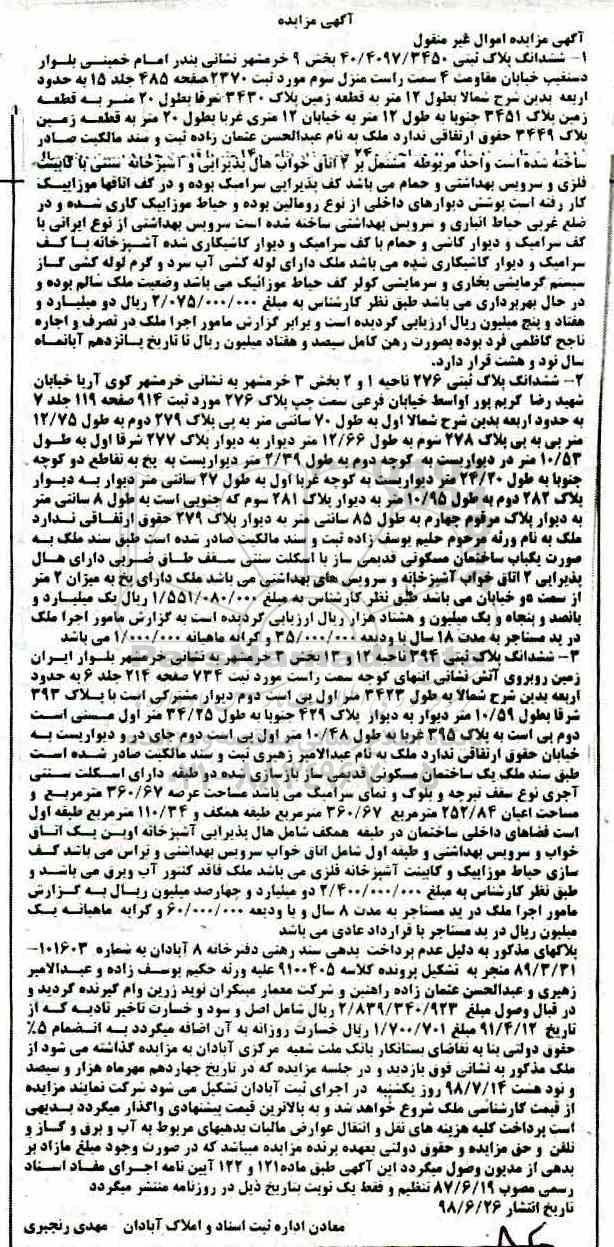 آگهی مزایده
آگهی مزایده اموال غیر منقول
۱- ششدانگ پلاک ثبتی ۴۰/۴۰۹۷/۳۴۵۰ بخش ۹ خرمشهر نشانی بندر امام خمینی بلوار
دستغیب خیابان مقاومت ۴ سمت راست منزل سوم مورد ثبت ۲۳۷۰ صفحه ۴۸۵ جلد ۱۵ به حدود
اربعه بدین شرح شمالا بطول ۱۲ متر به قطعه زمین پلاک ۳۴۳۰ شرقا بطول ۲۰ متر به قطعه
زمین پلاک ۳۴۵۱ جنوبا به طول ۱۲ متر به خیابان ۱۲ متری غربا بطول ۲۰ متر به قطعه زمین
پلاک ۳۴۴۹ حقوق ارتفاقی ندارد ملک به نام عبدالحسن عثمان زاده ثبت و سند مالکیت صادر
ساخته شده است واحد مربوطه مشتمل بر ۲ اتاق خواب هال پذیرایی و آشپزخانه سنتی با کابینت
فلزی و سرویس بهداشتی و حمام می باشد کف پذیرایی سرامیک بوده و در کف اتاقها موزاییک
کار رفته است پوشش دیوارهای داخلی از نوع رومالین بوده و حیاط موزاییک کاری شده و در
ضلع غربی حیاط انباری و سرویس بهداشتی ساخته شده است سرویس بهداشتی از نوع ایرانی با
کف سرامیک و دیوار کاشی و حمام با کف سرامیک و دیوار کاشیکاری شده آشپزخانه با کف
سرامیک و دیوار کاشیکاری شده می باشد ملک دارای لوله کشی آب سرد و گرم لوله کشی گاز
سیستم گرمایشی بخاری و سرمایشی کولر کف حیاط موزائیک می باشد وضعیت ملک سالم بوده و
در حال بهره‌برداری می باشد طبق نظر کارشناس به مبلغ ۲/۰۷۵/۰۰۰/۰۰۰ ریال دو میلیارد و
هفتاد و پنج میلیون ریال ارزیابی گردیده است و برابر گزارش مامور اجرا ملک در تصرف و اجاره
ناجح کاظمی فرد بوده بصورت رهن کامل سیصد و هفتاد میلیون ریال تا تاریخ پانزدهم آبانماه
سال نود و هشت قرار دارد.
۲- ششدانگ پلاک ثبتی ۲۷۶ ناحیه ۱ و ۲ بخش ۳ خرمشهر به نشانی خرمشهر کوی آریا خیابان
شهید رضا کریم پور اواسط خیابان فرعی سمت چپ پلاک ۲۷۶ مورد ثبت ۹۱۴ صفحه ۱۱۹ جلد ۷
به حدود اربعه بدین شرح شمالا اول به طول ۷۰ سانتی متر به پی پلاک ۲۷۹ دوم به طول ۱۲/۷۵
متر پی به پی پلاک ۲۷۸ سوم به طول ۱۲/۶۶ متر دیوار به دیوار پلاک ۲۷۷ شرقا اول به طول
۱۰/۵۳ متر در دیواریست به کوچه دوم به طول ۲/۳۹ متر دیواریست به پخ به تقاطع دو کوچه
جنوبا به طول ۲۴/۲۰ متر دیواریست به کوچه غربا اول به طول ۲۷ سانتی متر دیوار به دیوار
پلاک ۲۸۲ دوم به طول ۱۰/۹۵ متر به دیوار پلاک ۲۸۱ سوم که جنوبی است به طول ۸ سانتی متر
به دیوار پلاک مرقوم چهارم به طول ۸۵ سانتی متر به دیوار پلاک ۲۷۹ حقوق ارتفاقی ندارد
ملک به نام ورثه مرحوم حلیم یوسف زاده ثبت و سند مالکیت صادر شده است طبق سند ملک به
صورت یکباب ساختمان مسکونی قدیمی ساز با اسکلت سنتی سقف طاق ضربی دارای هال
پذیرایی ۲ اتاق خواب آشپزخانه و سرویس های بهداشتی می باشد ملک دارای پخ به میزان ۲ متر
از سمت دو خیابان می باشد طبق نظر کارشناس به مبلغ ۱/۵۵۱/۰۸۰/۰۰۰ ریال یک میلیارد و
پانصد و پنجاه و یک میلیون و هشتاد هزار ریال ارزیابی گردیده است به گزارش مامور اجرا ملک
در ید مستاجر به مدت ۱۸ سال با ودیعه ۳۵/۰۰۰/۰۰۰ و کرایه ماهیانه ۱/۰۰۰/۰۰۰ می باشد
۳- ششدانگ پلاک ثبتی ۳۹۴ ناحیه ۱۲ و ۱۳ بخش ۳ خرمشهر به نشانی خرمشهر بلوار ایران
زمین روبروی آتش نشانی انتهای کوچه سمت راست مورد ثبت ۷۳۴ صفحه ۲۱۴ جلد ۶ به حدود
اربعه بدین شرح شمالا به طول ۳۴۲۳ متر اول پی است دوم دیوار مشترکی است با پلاک ۳۹۳
شرقا بطول ۱۰/۵۹ متر دیوار به دیوار پلاک ۴۲۹ جنوبا به طول ۳۴/۲۵ متر اول
دوم پی است به پلاک ۳۹۵ غربا به طول ۱۰/۴۸ متر اول پی است دوم جای در و دیواریست به
خیابان حقوق ارتفاقی ندارد ملک به نام عبدالامیر زهیری ثبت و سند مالکیت صادر شده است
طبق سند ملک یک ساختمان مسکونی قدیمی ساز بازسازی شده دو طبقه دارای اسکلت سنتی
آجری نوع سقف تیرچه و بلوک و نمای سرامیک می باشد مساحت عرصه ۳۶۰/۶۷ مترمربع و
مساحت اعیان ۲۵۲/۸۴ مترمربع ۳۶۰/۶۷ مترمربع طبقه همکف و ۱۱۰/۳۴ مترمربع طبقه اول
است فضاهای داخلی ساختمان در طبقه همکف شامل هال پذیرایی آشپزخانه اوپن یک اتاق
خواب و سرویس بهداشتی و طبقه اول شامل اتاق خواب سرویس بهداشتی و تراس می باشد کف
سازی حیاط موزاییک و کابینت آشپزخانه فلزی می باشد ملک فاقد کنتور آب وبرق می باشد و
طبق نظر کارشناس به مبلغ ۲/۴۰۰/۰۰۰/۰۰۰ دو میلیارد و چهارصد میلیون ریال به گزارش
مامور اجرا ملک در ید مستاجر به مدت ۸ سال و با ودیعه ۶۰/۰۰۰/۰۰۰ و کرایه ماهیانه یک
میلیون ریال در ید مستاجر با قرارداد عادی می باشد
پلاکهای مذکور به دلیل عدم پرداخت بدهی سند رهنی دفترخانه ۸ آبادان به شماره ۱۰۱۶۰۳-
۸۹/۳/۳۱ منجر به تشکیل پرونده کلاسه ۹۱۰۰۴۰۵ علیه ورثه حکیم یوسف زاده و عبدالامیر
زهیری و عبدالحسن عثمان زاده راهنین و شرکت معمار مبتکران نوید زرین وام گیرنده گردید و
در قبال وصول مبلغ ۲/۸۳۹/۳۴۰/۹۲۳ ریال شامل اصل و سود و خسارت تاخیر تادیه که از
تاریخ ۹۱/۴/۱۲ مبلغ ۱/۷۰۰/۷۰۱ ریال خسارت روزانه به آن اضافه میگردد به انضمام ۵٪
حقوق دولتی بنا به تقاضای بستانکار بانک ملت شعبه مرکزی آبادان به مزایده گذاشته می شود از
ملک مذکور به نشانی فوق بازدید و در جلسه مزایده که در تاریخ چهاردهم مهرماه هزار و سیصد
و نود هشت ۹۸/۷/۱۴ روز یکشنبه در اجرای ثبت آبادان تشکیل می شود شرکت نمایند مزایده
از قیمت کارشناسی ملک شروع خواهد شد و به بالاترین قیمت پیشنهادی واگذار میگردد بدیهی
است پرداخت کلیه هزینه های نقل و انتقال عوارض مالیات بدهیهای مربوط به آب و برق و گاز و
تلفن و حق مزایده و حقوق دولتی بعهده برنده مزایده میباشد که در صورت وجود مبلغ مازاد بر
بدهی از مدیون وصول میگردد این آگهی طبق ماده۱۲۱ و ۱۲۲ آیین نامه اجرای مفاد اسناد
رسمی مصوب ۸۷/۶/۱۹ تنظیم و فقط یک نوبت بتاریخ ذیل در روزنامه منتشر میگردد
تاریخ انتشار ۹۸/۶/۲۶
معادن اداره ثبت اسناد و املاک آبادان مهدی رنجبری